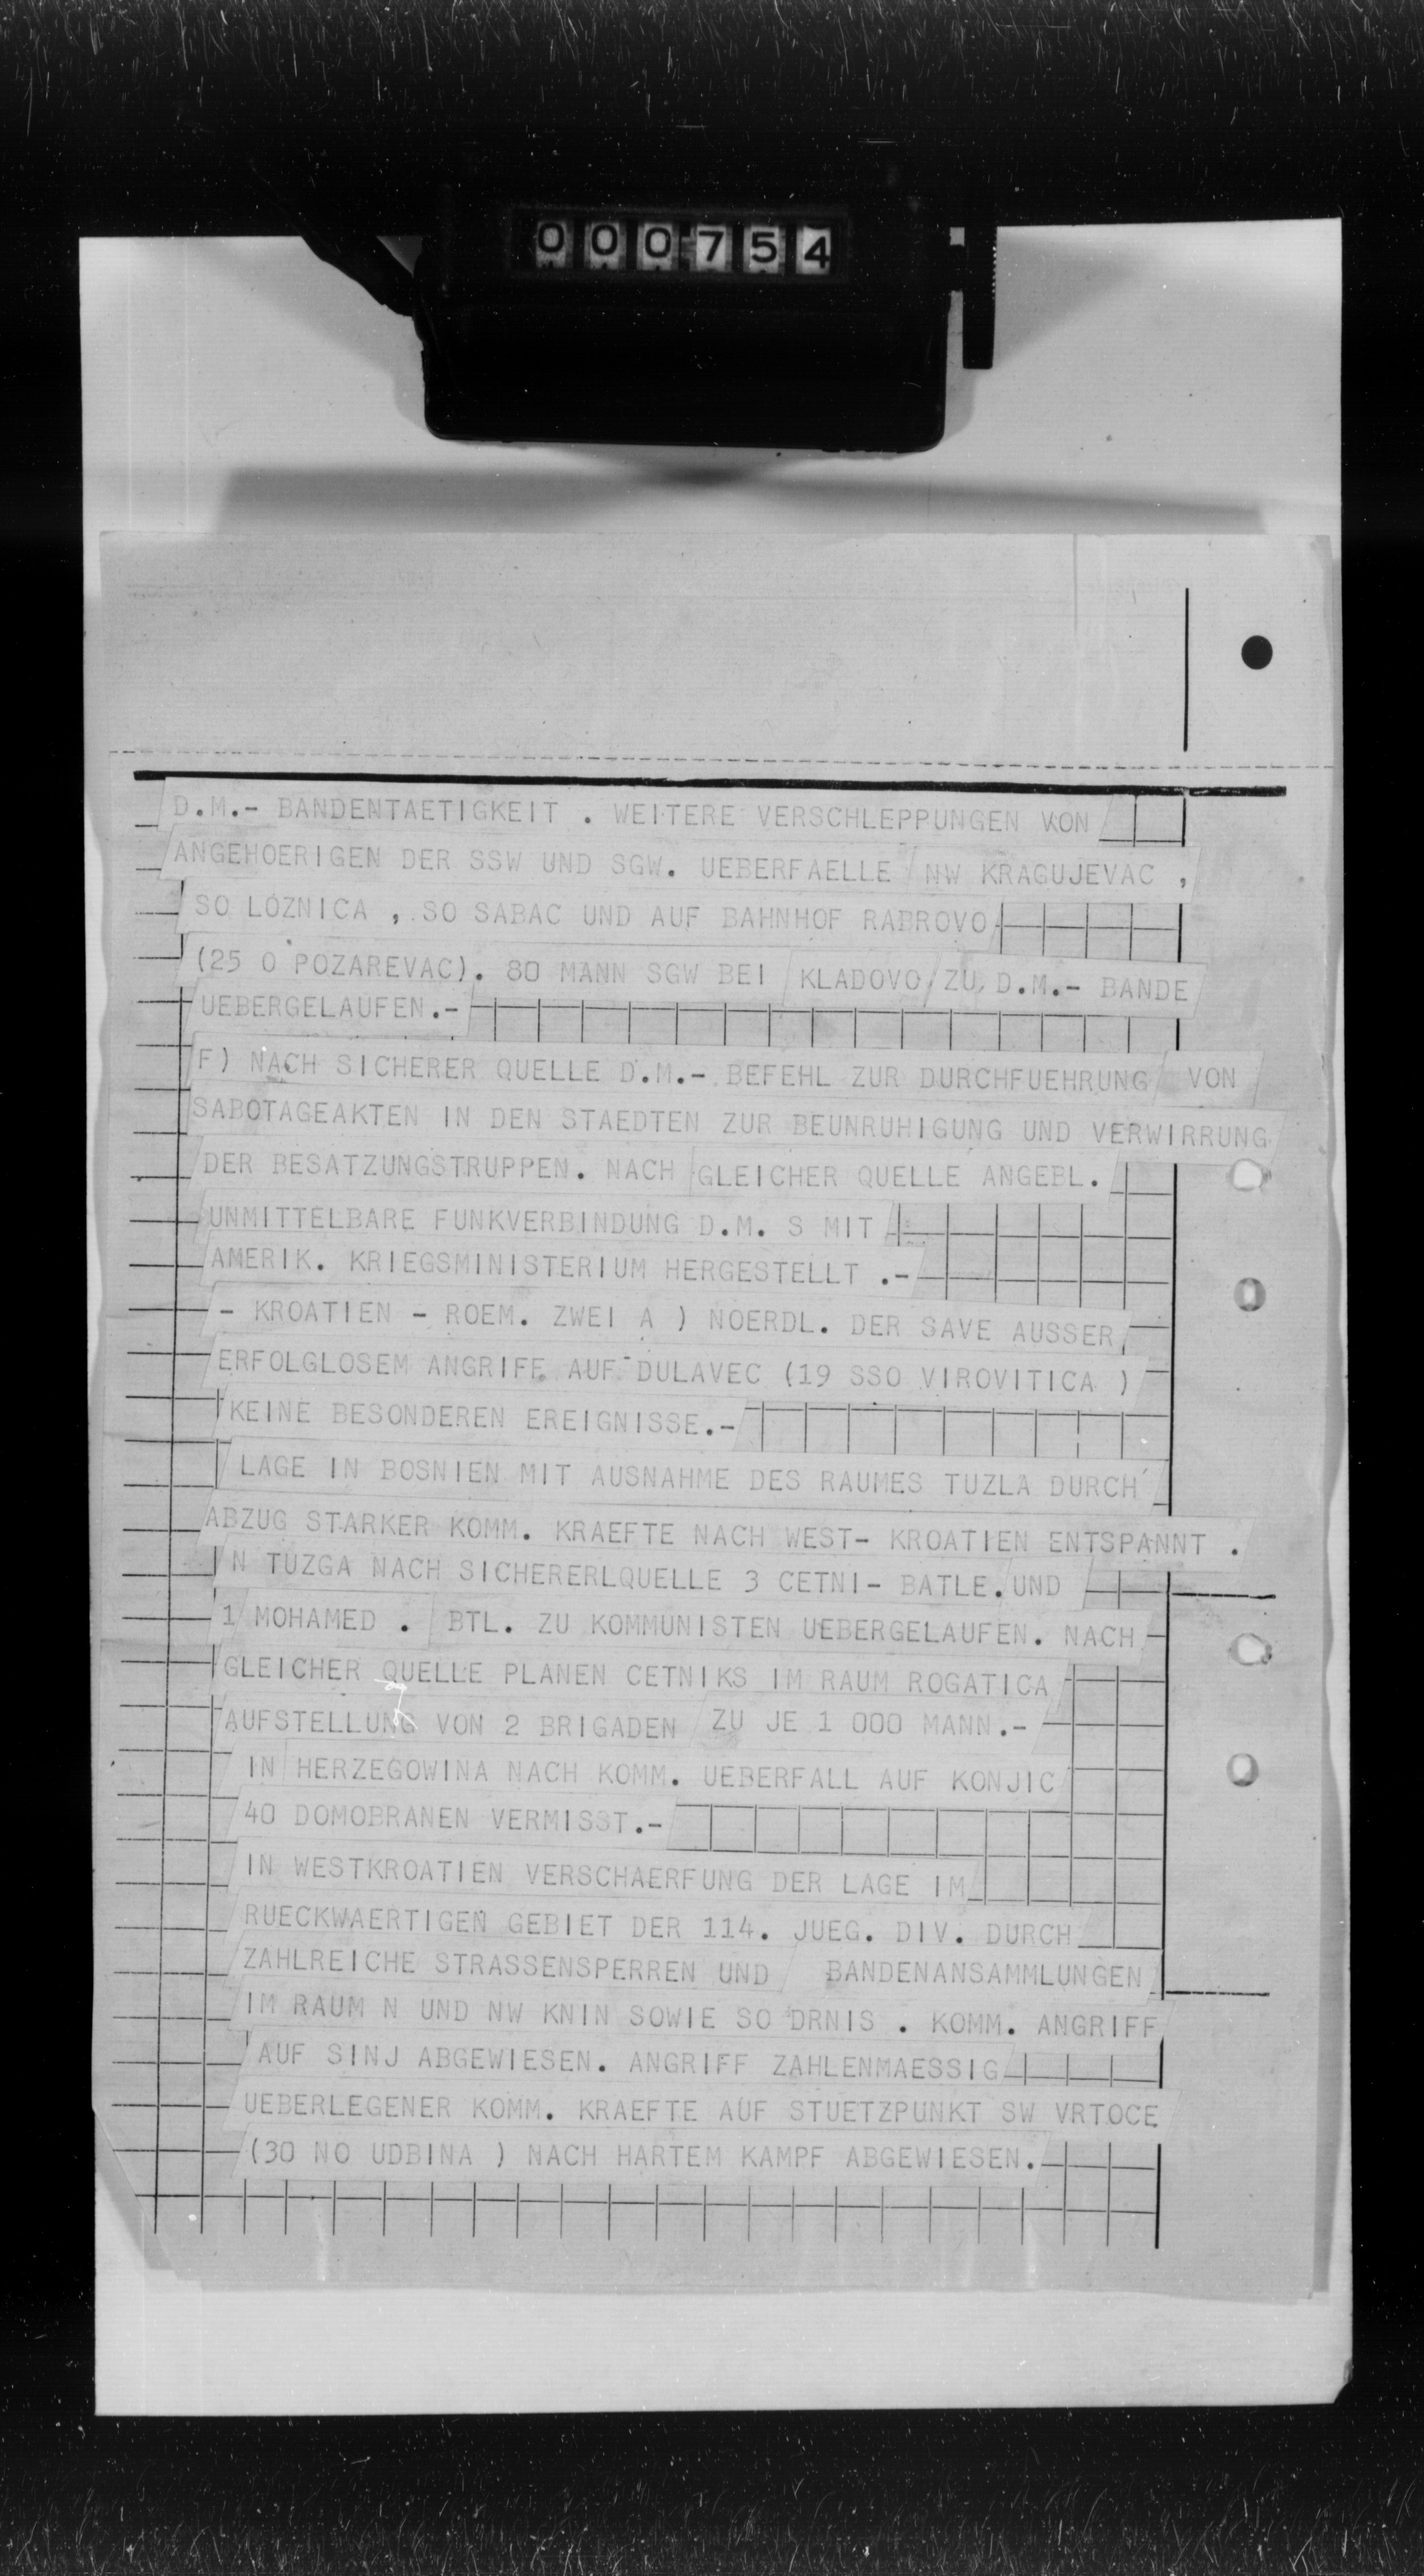 000754
D.M.- BANDENTAETIGKEIT . WEITERE VERSCHLEPPUNGEN VON
ANGEHOERIGEN DER SSW UND SGW. UEBERFAELLE NW KRAGUJEVAC ,
SO LOZNICA , SO SABAC UND AUF BAHNHOF RABROVO
(25 O POZAREVAC). 80 MANN SGW BEI KLADOVO ZU D.M.- BANDE
UEBERGELAUFEN.-
F) NACH SICHERER QUELLE D.M.- BEFEHL ZUR DURCHFUEHRUNG VON
SABOTAGEAKTEN IN DEN STAEDTEN ZUR BEUNRUHIGUNG UND VERWIRRUNG
DER BESATZUNGSTRUPPEN. NACH GLEICHER QUELLE ANGEBL.
UNMITTELBARE FUNKVERBINDUNG D.M. S MIT
AMERIK. KRIEGSMINISTERIUM HERGESTELLT .-
- KROATIEN - ROEM. ZWEI A ) NOERDL. DER SAVE AUSSER
ERFOLGLOSEM ANGRIFF AUF DULAVEC (19 SSO VIROVITICA )
KEINE BESONDEREN EREIGNISSE.-
LAGE IN BOSNIEN MIT AUSNAHME DES RAUMES TUZLA DURCH
ABZUG STARKER KOMM. KRAEFTE NACH WEST- KROATIEN ENTSPANNT .
N TUZGA NACH SICHERERLQUELLE 3 CETNI- BATLE. UND
1 MOHAMED . BTL. ZU KOMMUNISTEN UEBERGELAUFEN. NACH
GLEICHER QUELLE PLANEN CETNIKS IM RAUM ROGATICA
AUFSTELLUNG VON 2 BRIGADEN ZU JE 1 000 MANN.-
IN HERZEGOWINA NACH KOMM. UEBERFALL AUF KONJIC
40 DOMOBRANEN VERMISST.-
IN WESTKROATIEN VERSCHAERFUNG DER LAGE IM
RUECKWAERTIGEN GEBIET DER 114. JUEG. DIV. DURCH
ZAHLREICHE STRASSENSPERREN UND BANDENANSAMMLUNGEN
IM RAUM N UND NW KNIN SOWIE SO DRNIS . KOMM. ANGRIFF
AUF SINJ ABGEWIESEN. ANGRIFF ZAHLENMAESSIG
UEBERLEGENER KOMM. KRAEFTE AUF STUETZPUNKT SW VRTOCE
(30 NO UDBINA ) NACH HARTEM KAMPF ABGEWIESEN.